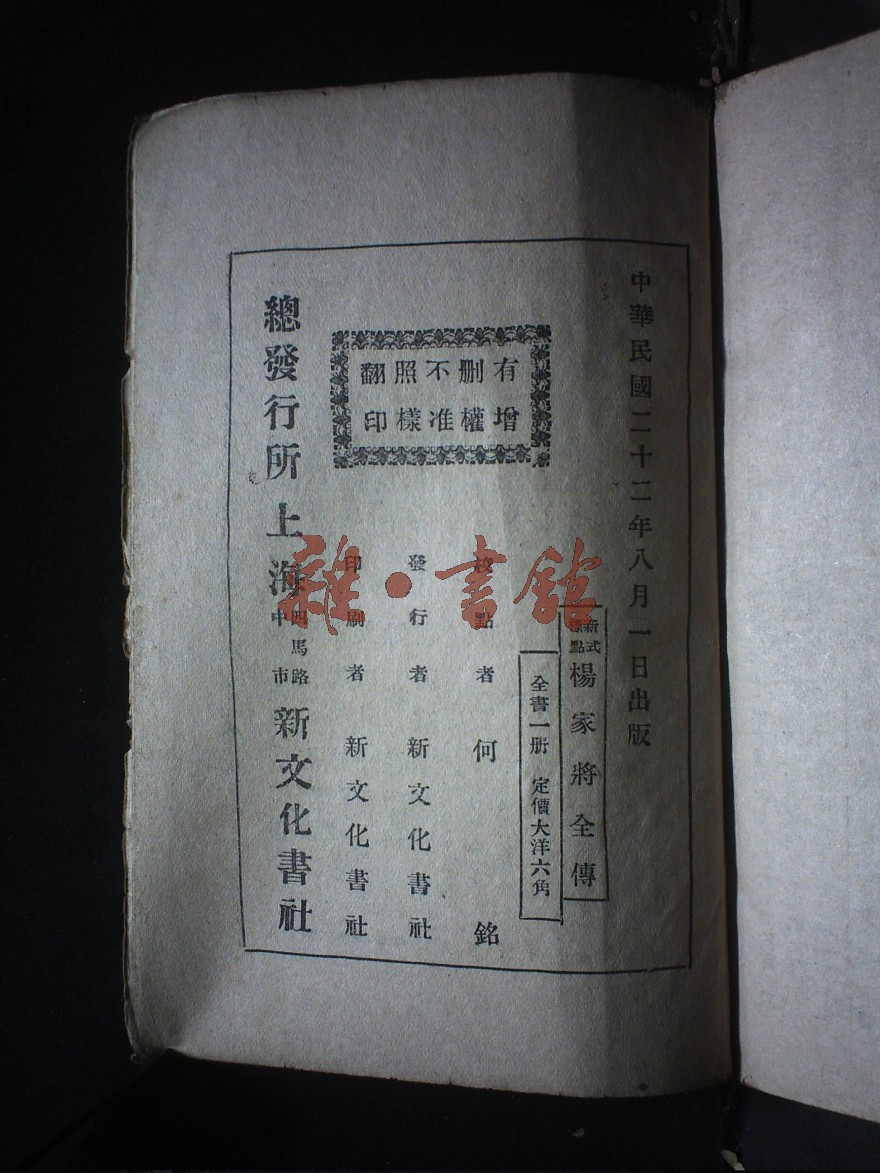 中華民國二十二年八月一日出版
新式標點
楊家將全傳
全書一册　定價大洋六角
有增
删權
不准
照樣
翻印
校點者　何銘
發行者　新文化書社
印刷者　新文化書社
總發行所　上海
四馬路
中市
新文化書社
雜·書館